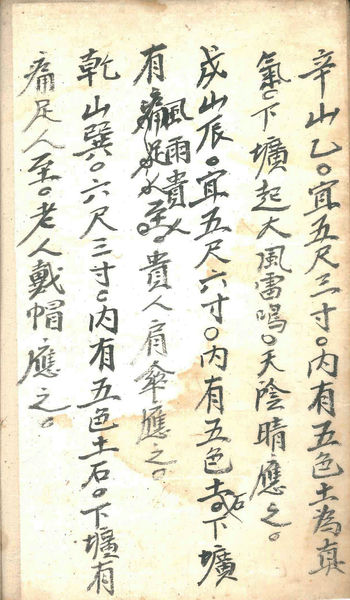 辛山乙。宜五尺三寸。内有五色土為真
氣。下壙起大風雷鳴。天陰晴應之。
戌山辰。宜五尺六寸。内有五色土石。下壙
有風雨至。貴人肩傘應之。
乾山巽。六尺三寸。内有五色土石。下壙有
痛足人至。老人戴帽應之。